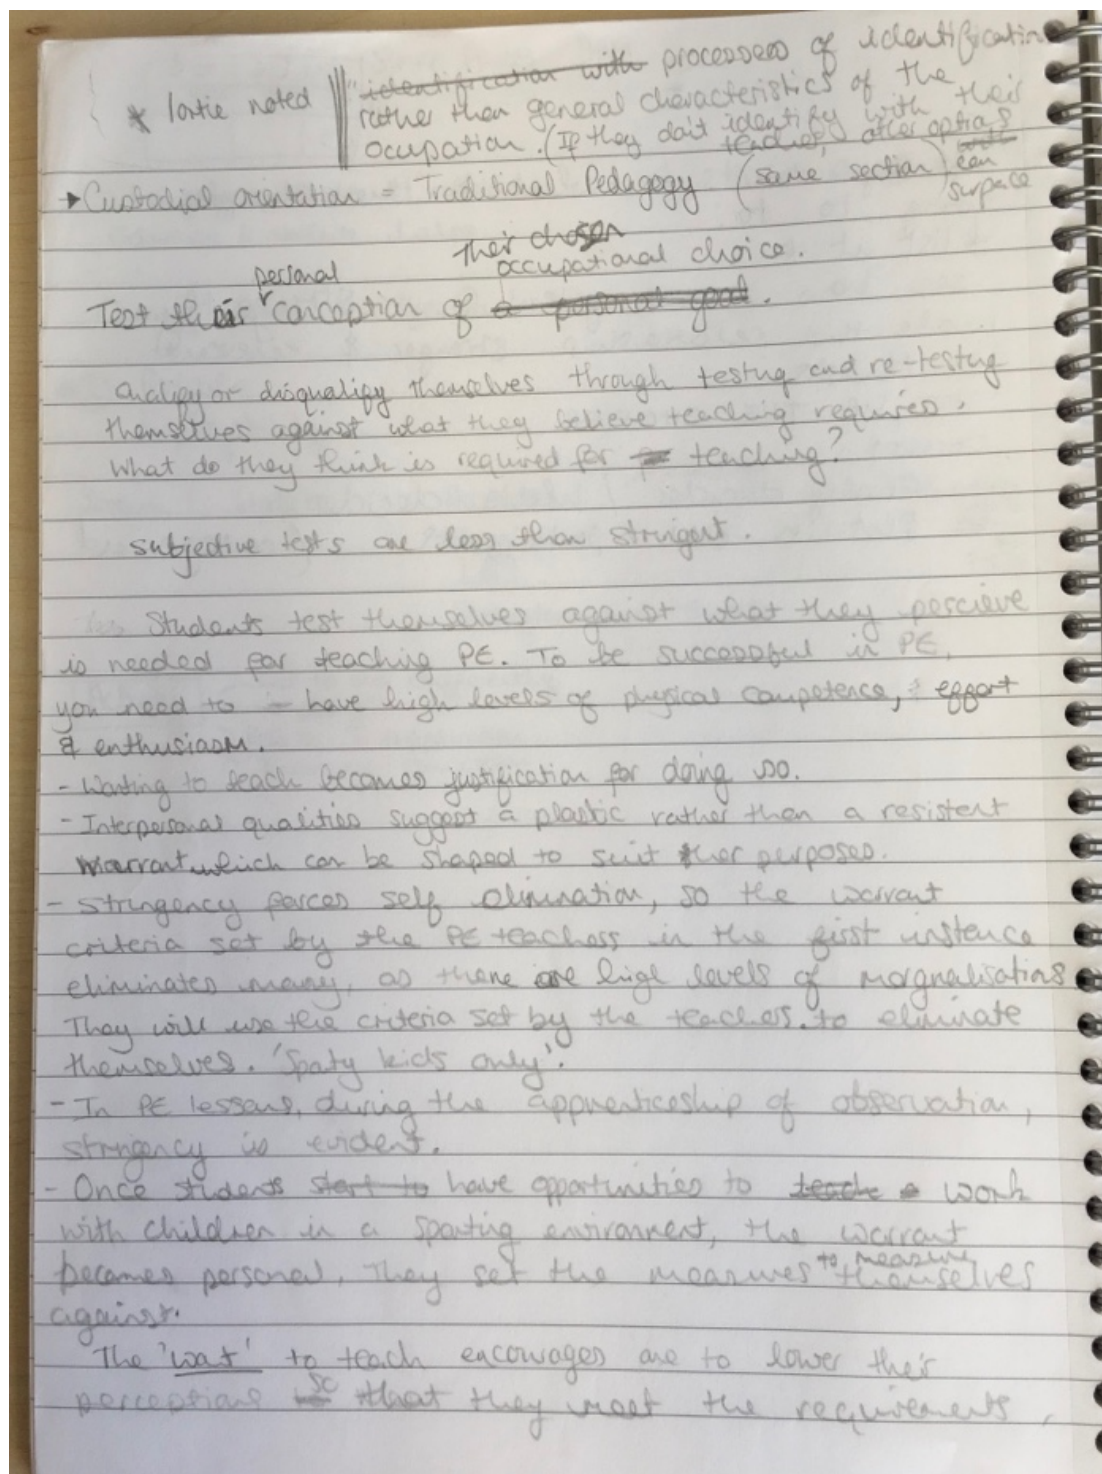 * lortie noted "identification with processes of identification
rather than general characteristics of the
ocupation. (If they don't identify with their
teacher, other options
can
surpace
→ Custodial orientation = Traditional Pedagogy (same section)
Their chosen
occupational choice.
personal
Test their conception of a personal goal.
Qualify or disqualify themselves through testing and re-testing
themselves against what they believe teaching requires.
What do they think is required for teaching?
subjective tests are less than stringent.
Students test themselves against what they percieve
is needed for teaching PE. To be successful in PE,
you need to - have high levels of physical competence, effort
& enthusiasm.
- Wanting to teach becomes justification for doing so.
- Interpersonal qualities suggest a plastic rather than a resistent
warrant which can be shaped to suit ther perposes.
- stringency forces self elimination, so the warrant
criteria set by the PE teachers in the first instence
eliminates many, as there are high levels of marginalisation
They will use the criteria set by the teachers. to eliminate
themselves. 'Sporty kids only'.
- In PE lessons, during the apprenticeship of observation,
stringency is evident.
- Once students start to have opportunities to teach work
with children in a sporting environment, the warrant
becomes personal, They set the measures to measure themselves
against.
The 'want' to teach encourages one to lower their
perceptions so that they meet the requirements,